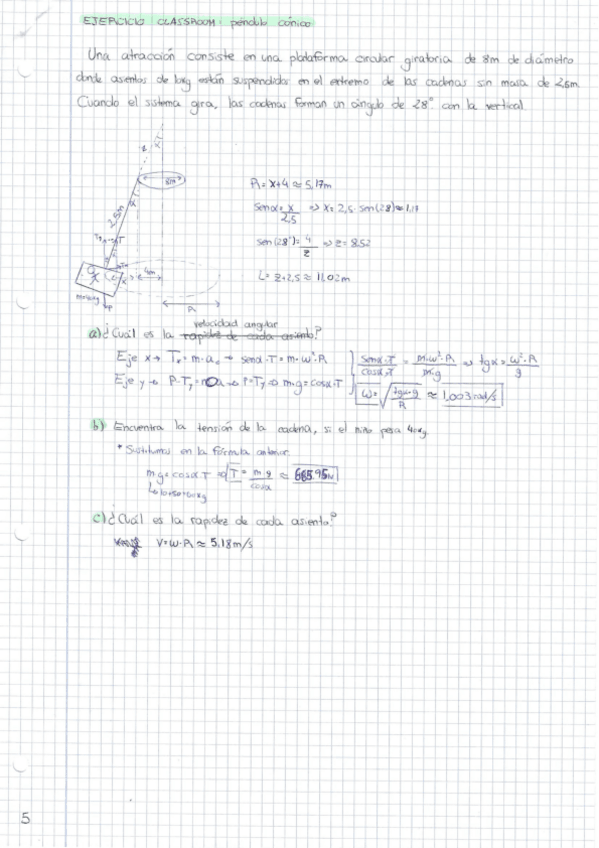 EJERCICIO CLASSROOM: péndulo cónico
Una atracción consiste en una plataforma circular giratoria de 8m de diámetro
donde asientos de 10kg están suspendidos en el extremo de las cadenas sin masa de 2,5m.
Cuando el sistema gira, las cadenas forman un ángulo de 28° con la vertical
8m
2,5m
α
4m
R
P
R = x+4 ≈ 5,17m
senα = x/2,5 => x = 2,5 · sen(28) ≈ 1,17
sen(28°) = 4/z => z = 8,52
L = z+2,5 ≈ 11,02m
velocidad angular
a) ¿Cuál es la rapidez de cada asiento?
Eje x → Tx = m·ac → senα·T = m·ω²·R
Eje y → P-Ty = m·a → P=Ty => m·g = cosα·T
senα·T/cosα·T = m·ω²·R/m·g => tgα = ω²·R/g
ω = √(tgα·g/R) ≈ 1,003 rad/s
b) Encuentra la tensión de la cadena, si el niño pesa 40kg
* Sustituimos en la fórmula anterior
m·g = cosα T => T = m·g/cosα ≈ 665,95N
c) ¿Cuál es la rapidez de cada asiento?
V = ω·R ≈ 5,18m/s
5